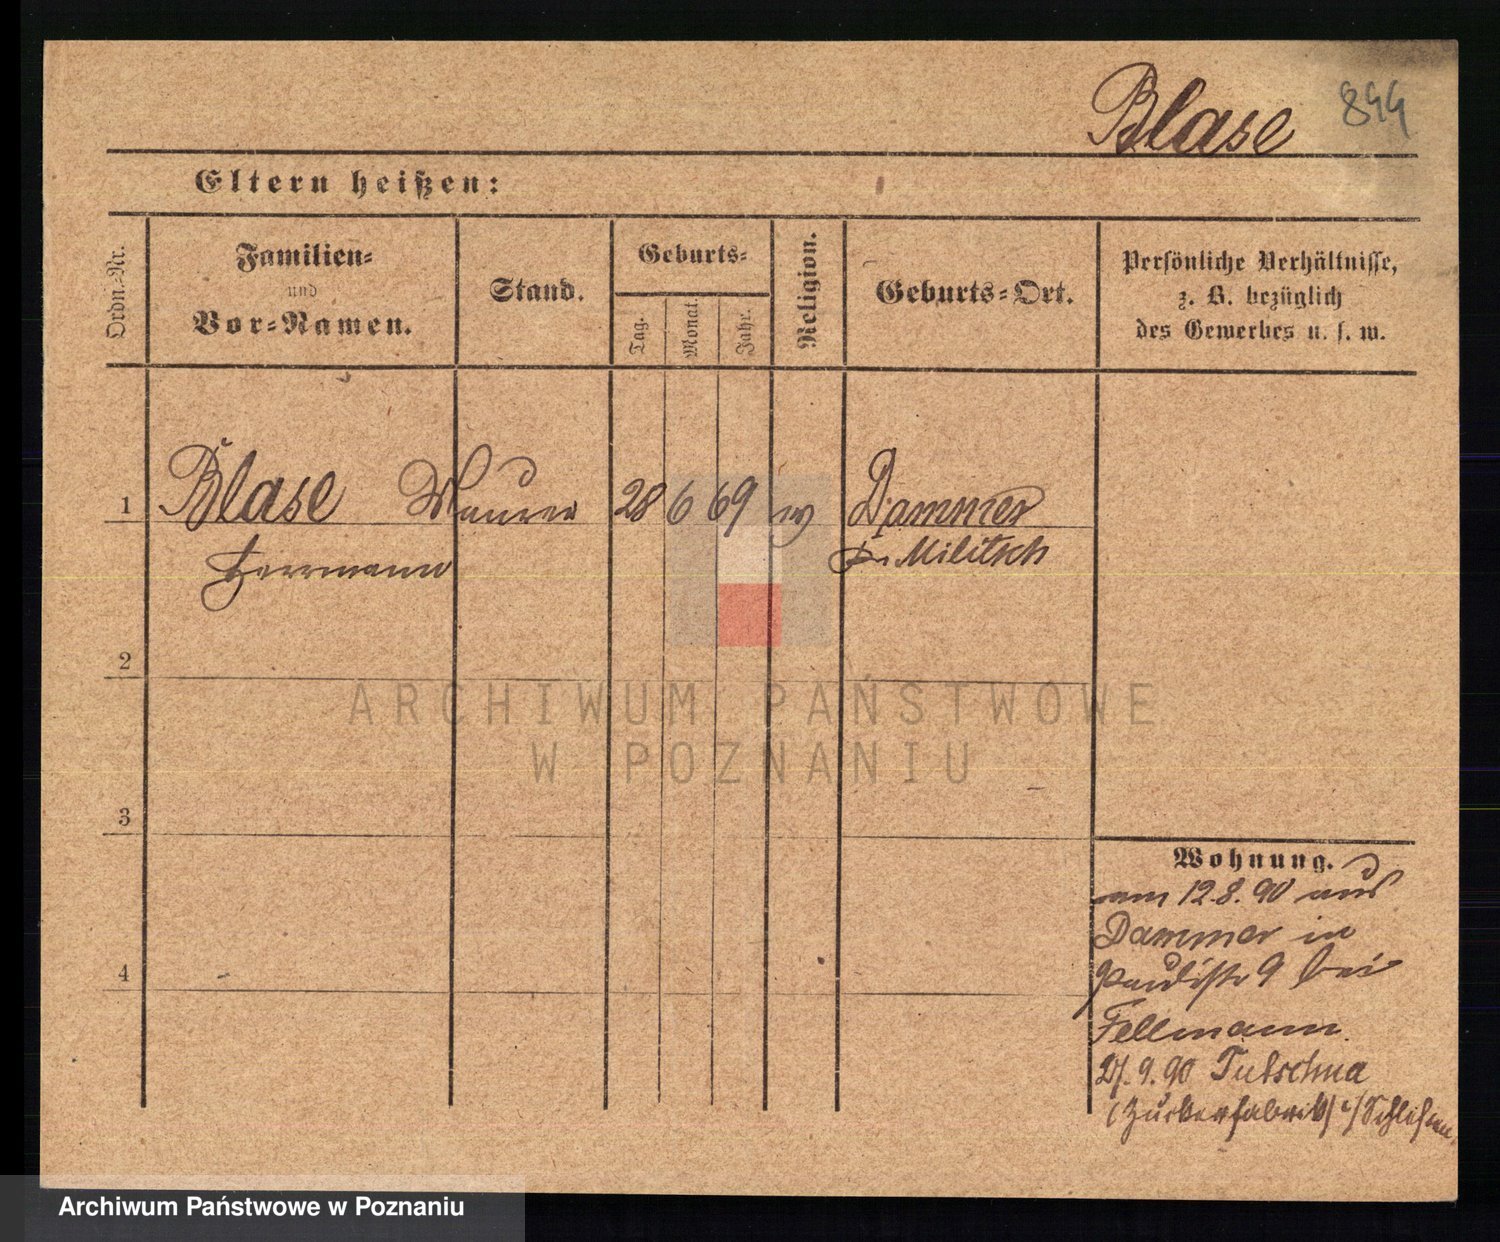 Blase 844
Eltern heißen:
Ordn.-Nr.
Familien-
und
Vor-Namen.
Stand.
Geburts-
Tag.
Monat.
Jahr.
Religion.
Geburts-Ort.
Persönliche Verhältnisse,
z. B. bezüglich
des Gewerbes u. s. w.
1 Blase Maurer 28 6 69 Dammer
Herrmann Militsch
2
ARCHIWUM PAŃSTWOWE
W POZNANIU
3
Wohnung.
am 12.8.90 aus
Dammer in
9 bei
Fellmann
4
27.9.90
(Zuckerfabrik) Schlesien
Archiwum Państwowe w Poznaniu